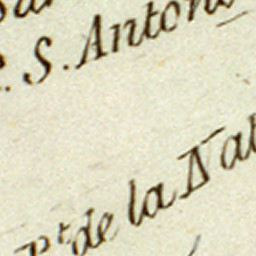 S. Antoni
Pt de la Nat